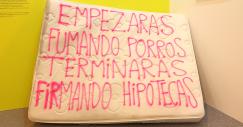 EMPEZARAS
FUMANDO PORROS
TERMINARAS
FIRMANDO HIPOTECAS